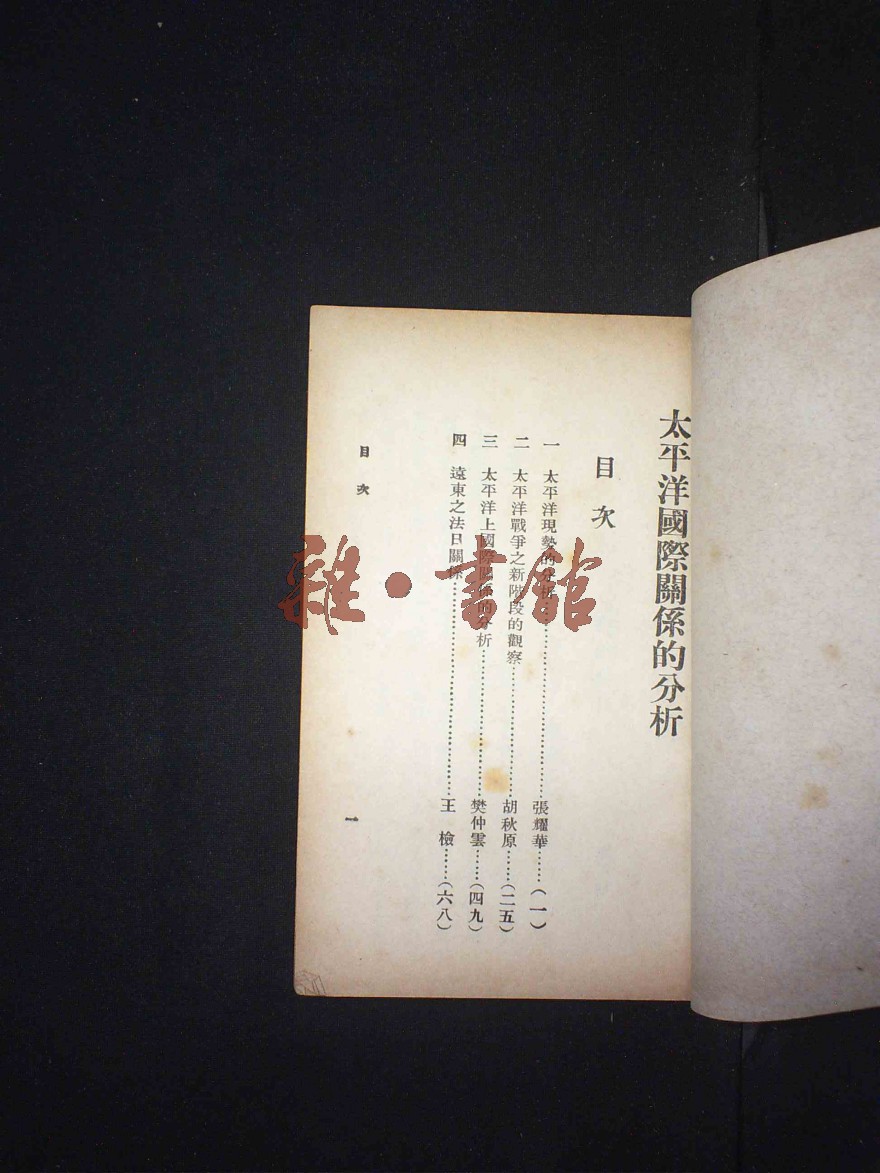 太平洋國際關係的分析
目次
一 太平洋現勢的分析……張耀華……(一)
二 太平洋戰爭之新階段的觀察……胡秋原……(二五)
三 太平洋上國際關係的分析……樊仲雲……(四九)
四 遠東之法日關係……王 檢……(六八)
目次
一
雜·書館